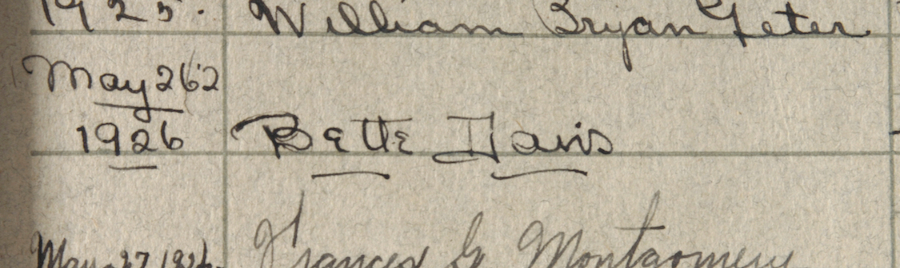 1925. William Bryan Jeter
May 262
1926 Bette Davis
May 27 1926. Frances G Montgomery